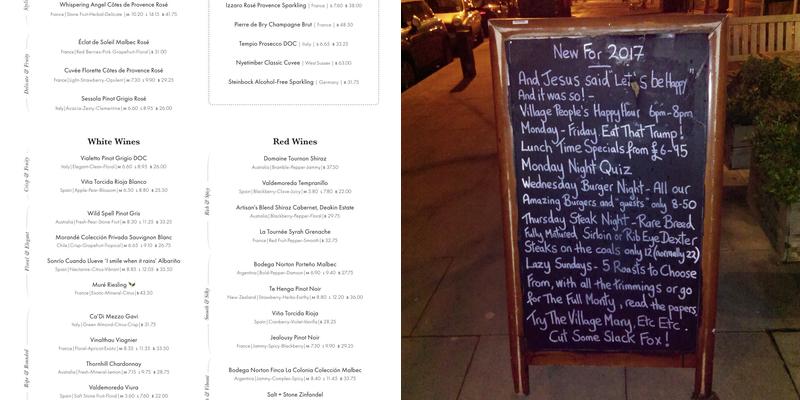 Whispering Angel Côtes de Provence Rosé
Éclat de Soleil Malbec Rosé
France|Red Berries-Pink Grapefruit-Floral|
Cuvée Florette Côtes de Provence Rosé
France|Light-Strawberry-Opulent|
Sessola Pinot Grigio Rosé
Italy|Acacia-Zesty-Clementine|
Delicate & Fruity
Izzaro Rosé Prosecco Sparkling | France |
Pierre de Bry Champagne Brut | France |
Tempio Prosecco DOC | Italy |
Nyetimber Classic Cuvee | West Sussex |
Steinbock Alcohol-Free Sparkling | Germany |
White Wines
Crisp & Fruity
Vialetto Pinot Grigio DOC
Italy|Elegant-Clean-Floral|
Viña Torcida Rioja Blanco
Spain|Apple-Pear-Blossom|
Floral & Elegant
Wild Spell Pinot Gris
Australia|Fresh-Pear-Stone Fruit|
Morandé Colección Privada Sauvignon Blanc
Chile|Crisp-Grapefruit-Tropical|
Sonrío Cuando Llueve 'I smile when it rains' Albariño
Spain|Nectarine-Citrus-Vibrant|
Muré Riesling
France|Exotic-Mineral-Citrus|
Ripe & Rounded
Ca'Di Mezzo Gavi
Italy|Green Almond-Citrus-Crisp|
Vinalthau Viognier
France|Floral-Apricot-Exotic|
Thornhill Chardonnay
Australia|Fresh-Mineral-Lemon|
Valdemoreda Viura
Spain|Soft Stone Fruit-Floral|
Red Wines
Rich & Spicy
Domaine Tournon Shiraz
Australia|Bramble-Pepper-Jammy|
Valdemoreda Tempranillo
Spain|Blackberry-Clove-Juicy|
Artisan's Blend Shiraz Cabernet, Deakin Estate
Australia|Blackberry-Pepper-Floral|
La Tournée Syrah Grenache
France|Red Fruit-Pepper-Smooth|
Smooth & Silky
Bodega Norton Porteño Malbec
Argentina|Bold-Pepper-Damson|
Te Henga Pinot Noir
New Zealand|Strawberry-Herbs-Earthy|
Viña Torcida Rioja
Spain|Cranberry-Violet-Vanilla|
Jealousy Pinot Noir
France|Jammy-Spicy-Blackberry|
Bodega Norton Finca La Colonia Colección Malbec
Argentina|Jammy-Complex-Spicy|
Salt + Stone Zinfandel
New For 2017
And Jesus said "Let's be Happy"
And it was so! -
Village People's Happy Hour 6pm-8pm
Monday - Friday. Eat That Trump!
Lunch Time Specials from £6-95
Monday Night Quiz
Wednesday Burger Night - All our
Amazing Burgers and "guests" only 8-50
Thursday Steak Night - Rare Breed
Fully Matured Sirloin or Rib Eye Dexter
Steaks on the coals only 12 (normally 22)
Lazy Sundays - 5 Roasts to Choose
From, with all the trimmings or go
for The Full Monty, read the papers
Try The Village Mary, Etc Etc.
Cut Some Slack Fox!